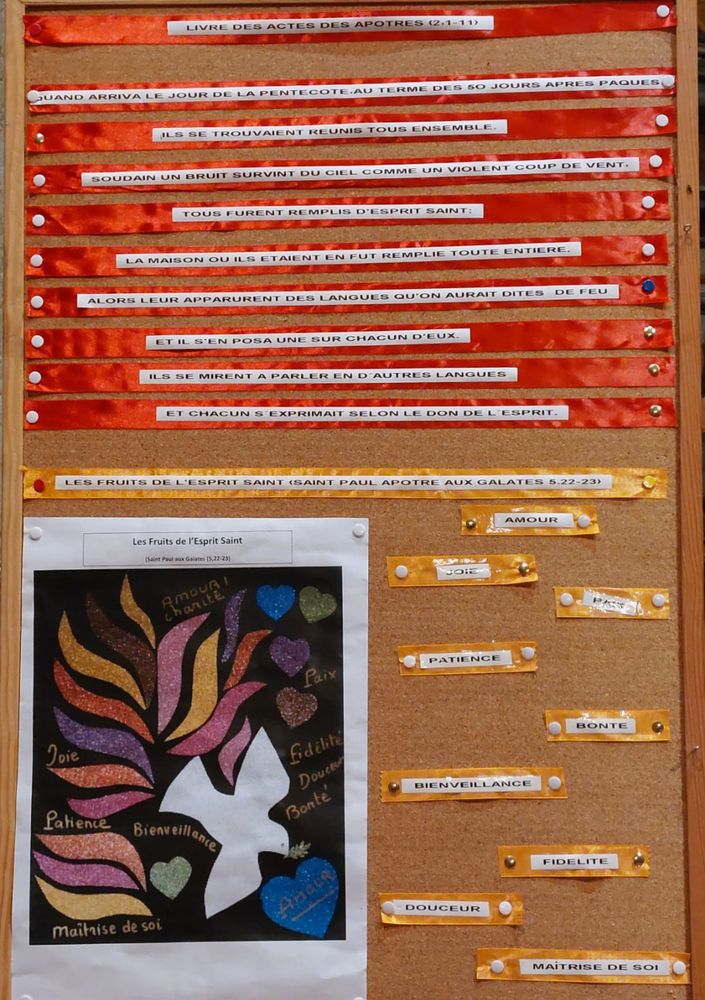 LIVRE DES ACTES DES APOTRES (2,1-11)
QUAND ARRIVA LE JOUR DE LA PENTECOTE.AU TERME DES 50 JOURS APRES PAQUES.
ILS SE TROUVAIENT REUNIS TOUS ENSEMBLE.
SOUDAIN UN BRUIT SURVINT DU CIEL COMME UN VIOLENT COUP DE VENT.
TOUS FURENT REMPLIS D'ESPRIT SAINT:
LA MAISON OU ILS ETAIENT EN FUT REMPLIE TOUTE ENTIERE.
ALORS LEUR APPARURENT DES LANGUES QU'ON AURAIT DITES DE FEU
ET IL S'EN POSA UNE SUR CHACUN D'EUX.
ILS SE MIRENT A PARLER EN D'AUTRES LANGUES
ET CHACUN S'EXPRIMAIT SELON LE DON DE L'ESPRIT.
LES FRUITS DE L'ESPRIT SAINT (SAINT PAUL APOTRE AUX GALATES 5,22-23)
AMOUR
JOIE
PAIX
PATIENCE
BONTE
BIENVEILLANCE
FIDELITE
DOUCEUR
MAITRISE DE SOI
Les Fruits de l'Esprit Saint
(Saint Paul aux Galates (5,22-23)
AMOUR!
charité
Paix
Fidélité
Douceur
Bonté
Joie
Patience
Bienveillance
Amour
Maîtrise de soi